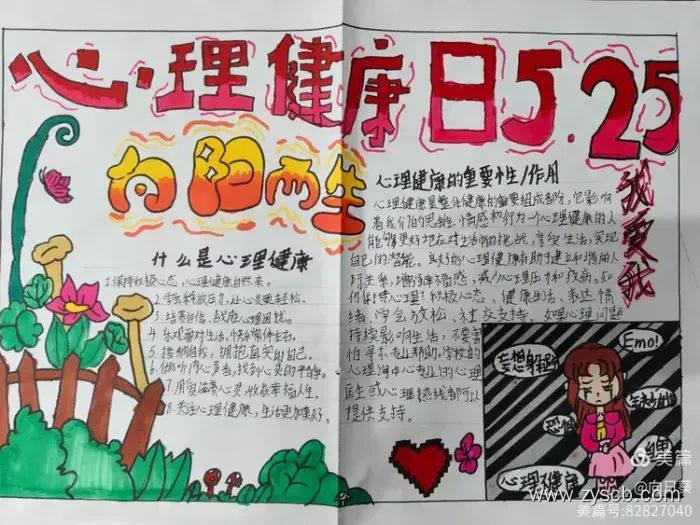 心理健康日5.25
向阳而生
我要我
什么是心理健康
1.保持积极心态，心理健康自然来。
2.学会释放压力，让心灵更轻松。
3.培养自信，战胜心理困扰。
4.乐观面对生活，快乐常伴左右。
5.接纳自我，拥抱真实的自己。
6.倾听内心声音，找到心灵的平静。
7.用爱滋养心灵，收获幸福人生。
8.关注心理健康，生活更加美好。
心理健康的重要性/作用
心理健康是整体健康的重要组成部分，它影响
着我们的思维、情感和行为一个心理健康的人
能够更好地应对生活中的挑战，享受生活，实现
自己的潜能。良好的心理健康有助于建立和谐的人
际关系，增强幸福感，减少心理压力和疾病。如
何保持心理？积极心态、健康生活、表达情
绪、学会放松、社交支持。如果心理问题
持续影响生活，不要害
怕寻求专业帮助，学校的
心理询中心专业的心理
医生或心理热线都可以
提供支持。
Emo!
妄想
恐惧
心理不健康
美篇
@向日葵
美篇号:82827040
www.zyscb.com